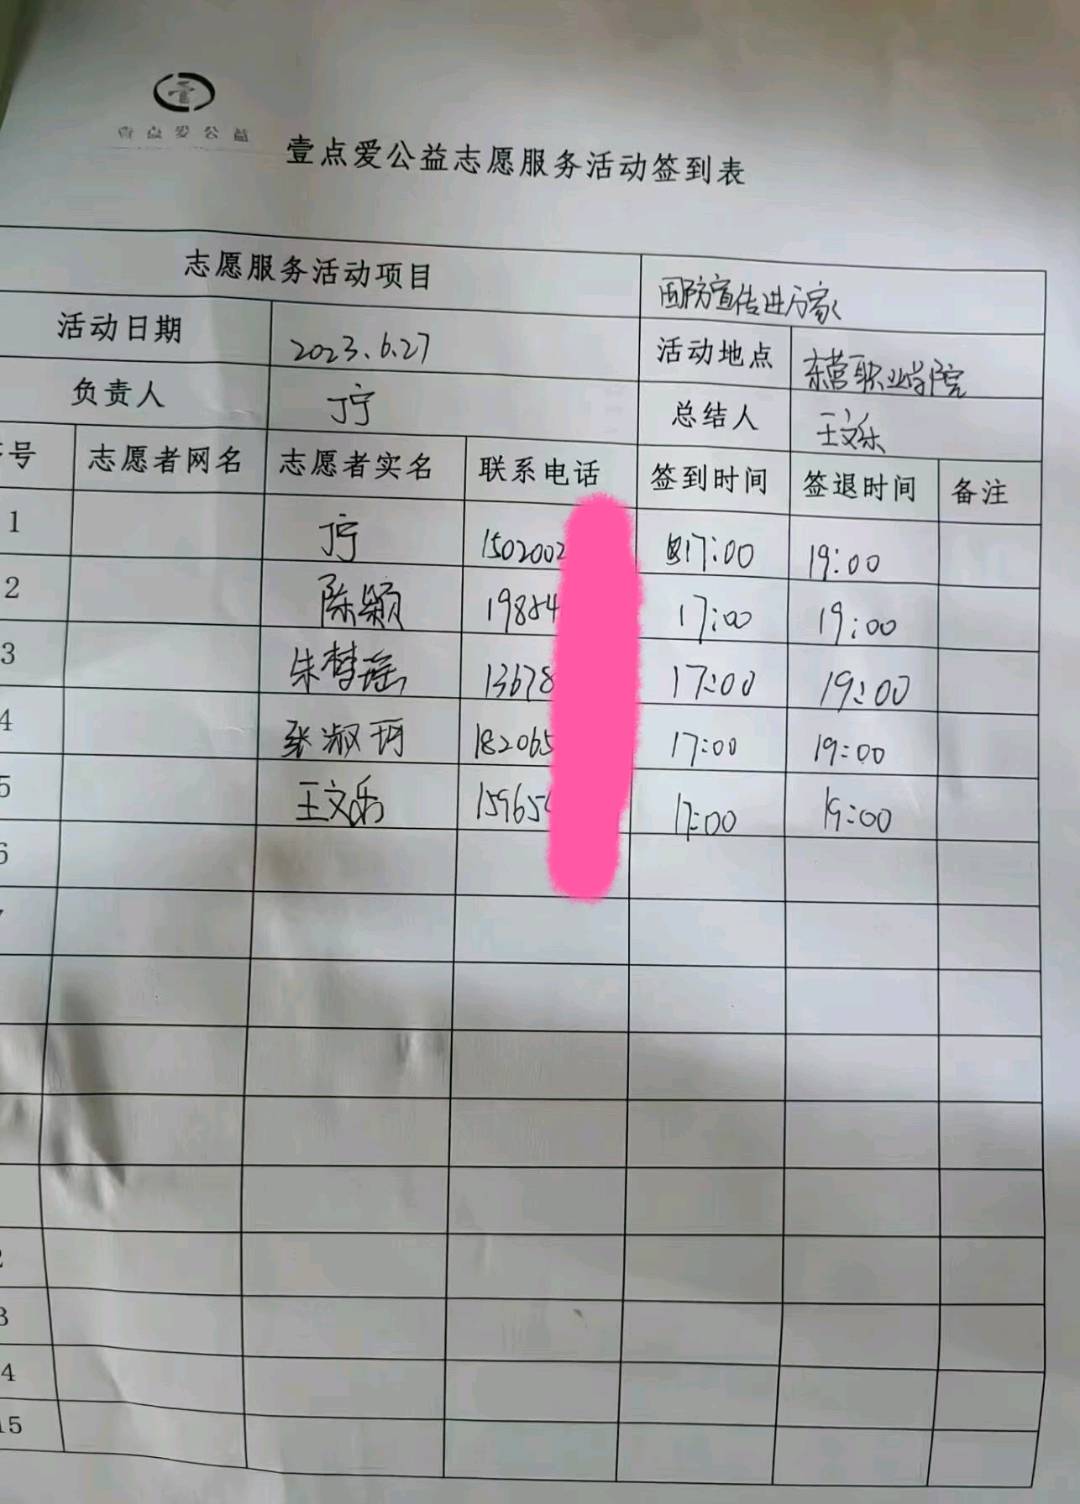 壹点爱公益
壹点爱公益志愿服务活动签到表
志愿服务活动项目 国防宣传进万家
活动日期 2023.6.27 活动地点 东营职业学院
负责人 丁宁 总结人 王文乐
序号 志愿者网名 志愿者实名 联系电话 签到时间 签退时间 备注
1 丁宁 1502002 17:00 19:00
2 陈颖 19884 17:00 19:00
3 朱梦瑶 13678 17:00 19:00
4 张淑珂 182065 17:00 19:00
5 王文乐 15965 17:00 19:00
6
2
3
4
15